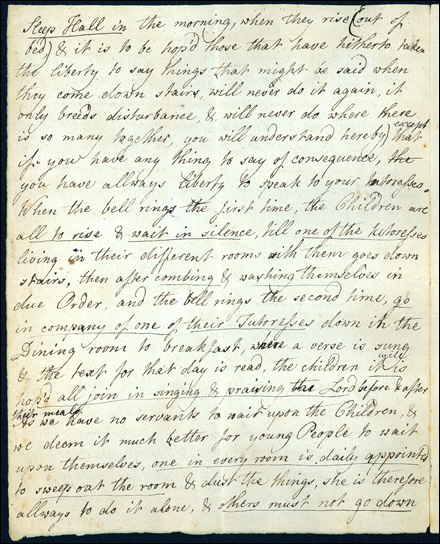 Sleep Hall in the morning, when they rise (out of
bed,) & it is to be hop'd those that have hitherto taken
the liberty to say things that might be said when
they come down stairs, will never do it again, it
only breeds disturbance, & will never do where there
is so many together, you will understand hereby, except that
if you have any thing to say of consequence, the
you have allways liberty to speak to your Tutoresses.
When the bell rings the first time, the Children are
all to rise & wait in silence, till one of the tutoresses
living in their different rooms with them goes down
stairs, then after combing & washing themselves in
due Order, and the bell rings the second time, go
in company of one of their Tutoresses down in the
Dining room to breakfast, where a verse is sung
& the text for that day is read, the children it is
hop'd all will join in singing & praising the Lord before & after
their meals
As we have no servants to wait upon the Children, &
we deem it much better for young People to wait
upon themselves, one in every room is daily appointed
to sweep out the room & dust the things, she is therefore
allways to do it alone, & others must not go down